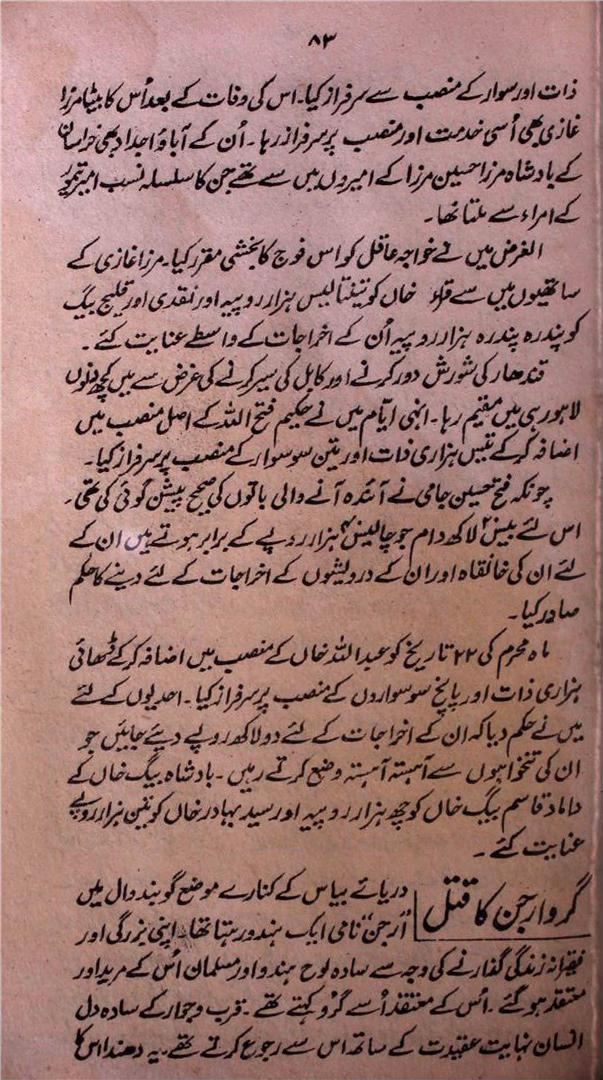 ۸۳
ذات اور سوار کے منصب سے سرفراز کیا۔ اس کی وفات کے بعد اُس کا بیٹا مرزا
غازی بھی اُسی خدمت اور منصب پر سرفراز رہا۔ اُن کے آباؤ اجداد بھی خراسان
کے بادشاہ مرزا حسین مرزا کے امیروں میں سے تھے جن کا سلسلہ نسب امیر تیمور
کے امراء سے ملتا تھا۔
الغرض میں نے خواجہ عاقل کو اس فوج کا بخشی مقرر کیا۔ مرزا غازی کے
ساتھیوں میں سے قراء خاں کو تینتالیس ہزار روپیہ اور نقدی اور قلیج بیگ
کو پندرہ پندرہ ہزار روپیہ اُن کے اخراجات کے واسطے عنایت کئے۔
قندھار کی شورش دور کرنے اور کابل کی سیر کرنے کی غرض سے میں کچھ دنوں
لاہور ہی میں مقیم رہا۔ انہی ایام میں نے حکیم فتح اللہ کے اصل منصب میں
اضافہ کر کے تیس ہزاری ذات اور تین سو سوار کے منصب پر سرفراز کیا۔
چونکہ فتح حسین جامی نے آئندہ آنے والی باتوں کی صحیح پیشن گوئی کی تھی۔
اس لئے بیس لاکھ دام جو چالیس ہزار روپے کے برابر ہوتے ہیں ان کے
لئے ان کی خانقاہ اور ان کے درویشوں کے اخراجات کے لئے دینے کا حکم
صادر کیا۔
ماہ محرم کی ۲۲ تاریخ کو عبد اللہ خاں کے منصب میں اضافہ کر کے ڈھائی
ہزاری ذات اور پانچ سو سواروں کے منصب پر سرفراز کیا۔ احدیوں کے لئے
میں نے حکم دیا کہ ان کے اخراجات کے لئے دو لاکھ روپے دیئے جائیں جو
ان کی تنخواہوں سے آہستہ آہستہ وضع کرتے رہیں۔ بادشاہ بیگ خاں کے
داماد قاسم بیگ خاں کو چھ ہزار روپیہ اور سید بہادر خاں کو تین ہزار روپے
عنایت کئے۔
گرو ارجن کا قتل
دریائے بیاس کے کنارے موضع گویندوال میں
"ارجن" نامی ایک ہندو رہتا تھا۔ اپنی بزرگی اور
فقیرانہ زندگی گذارنے کی وجہ سے سادہ لوح ہندو اور مسلمان اُس کے مرید اور
معتقد ہو گئے۔ اُس کے معتقد اُسے گرو کہتے تھے۔ قرب و جوار کے سادہ دل
انسان نہایت عقیدت کے ساتھ اس سے رجوع کرتے تھے۔ یہ دھندا اس کا